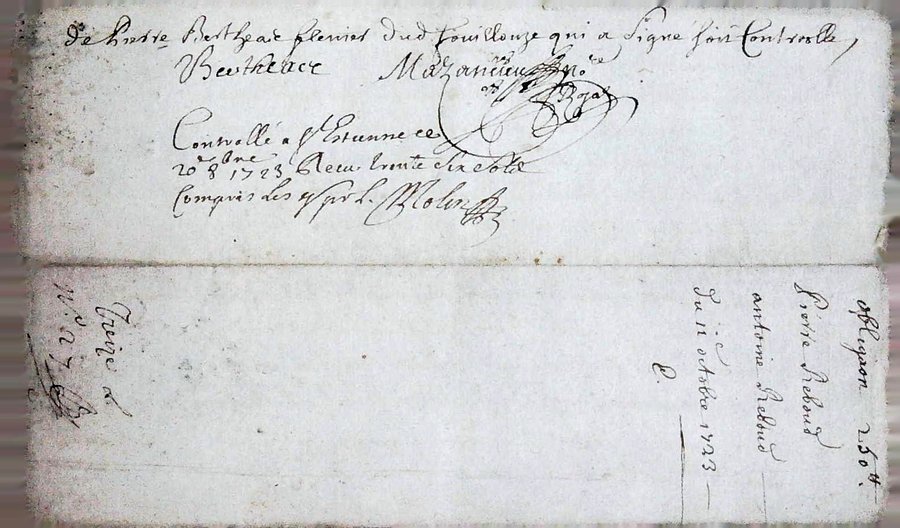 de Pierre Bertheac fermier dud fouillouze qui a signé soit Controllé,
Bertheac Mazancieu no.re
Royal
Controllé a St Estienne ce
20e 8bre 1723 Receu trente six sols
Compris les
Molin
obligaon 250tt.
Pierre Reboud
antoine Reboud
du 11e octobre 1723
P.
Treize L
N.o 27